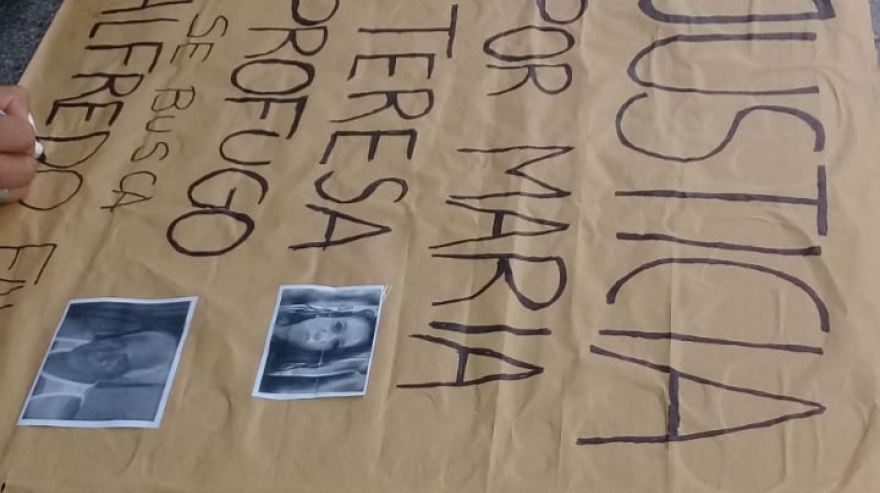 JUSTICIA
POR MARIA
TERESA
PROFUGO
SE BUSCA
ALFREDO